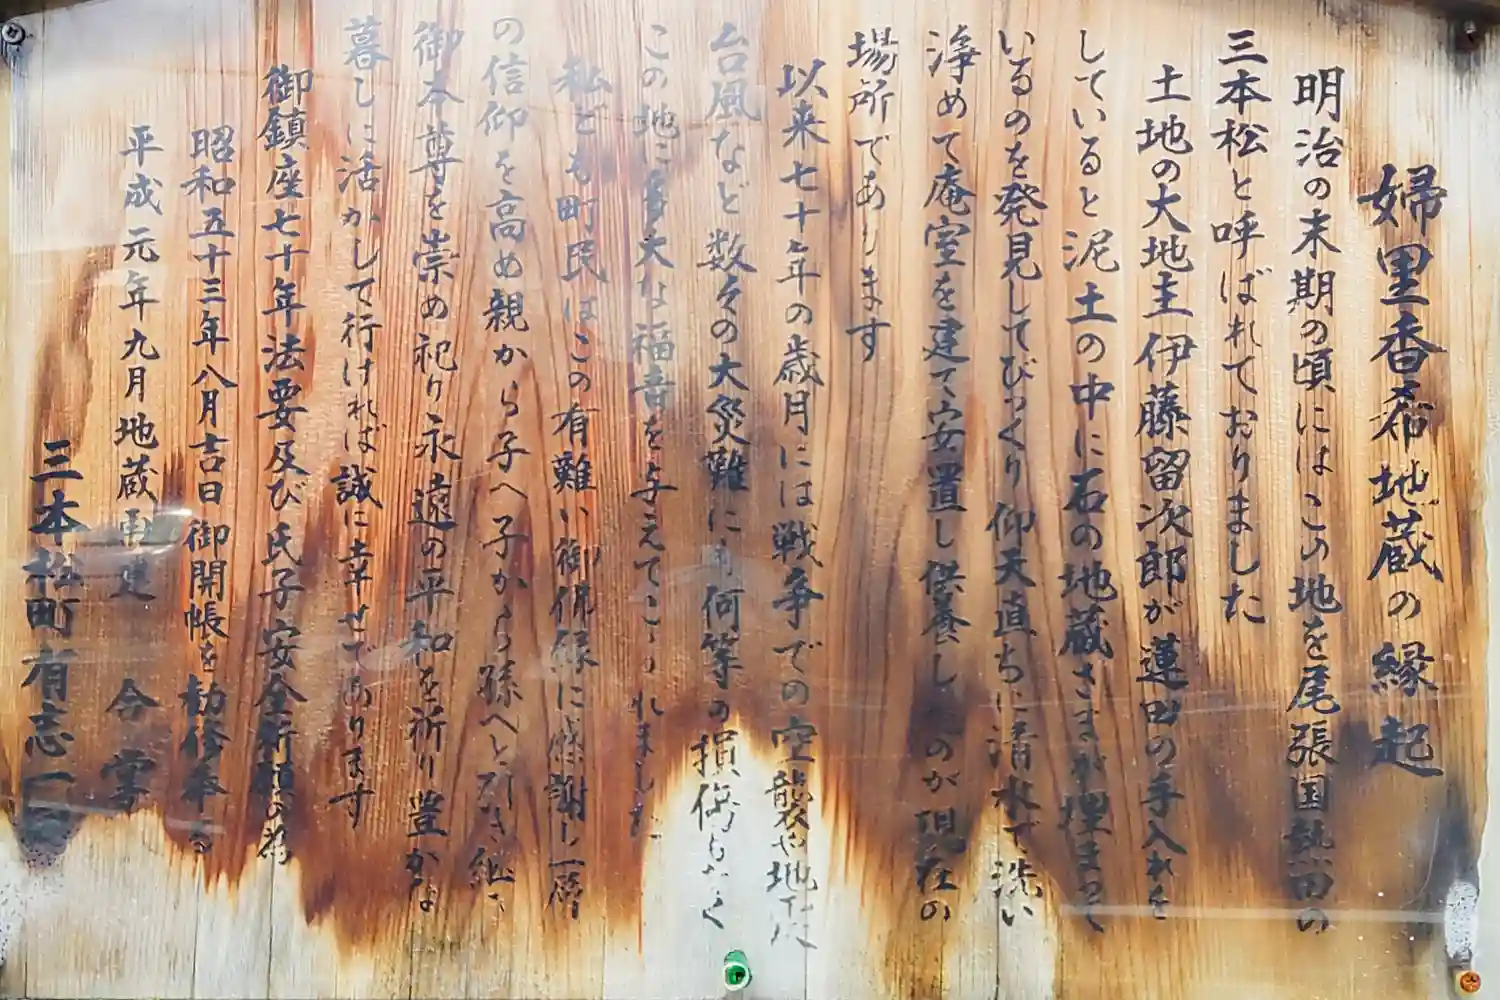 婦里香希地蔵の縁起
明治の末期の頃にはこの地を尾張国熱田の
三本松と呼ばれておりました
土地の大地主伊藤留次郎が蓮田の手入れを
していると泥土の中に石の地蔵さまが埋まって
いるのを発見してびっくり仰天直ちに清水で洗い
浄めて庵室を建て安置し供養し のが現在の
場所であります
以来七十年の歳月には戦争での空襲や地震
台風など数々の大災難にも何等の損傷もなく
この地に多大な福音を与えてこられました
私ども町民はこの有難い御佛縁に感謝し一層
の信仰を高め親から子へ子から孫へと引き継ぎ
御本尊を崇め祀り永遠の平和を祈り豊かな
暮しに活かして行ければ誠に幸せであります
御鎮座七十年法要及び氏子安全祈願の為
昭和五十三年八月吉日御開帳を勤修奉る
平成元年九月地蔵再建 合掌
三本松町有志一同